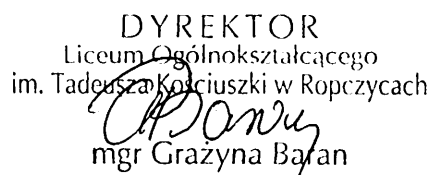 DYREKTOR
Liceum Ogólnokształcącego
im. Tadeusza Kościuszki w Ropczycach
mgr Grażyna Baran